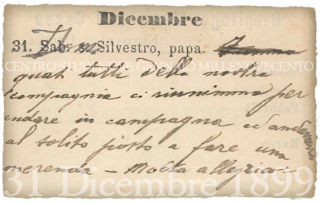 Dicembre
31. Sab. s. Silvestro, papa.
CENTRO STUDI MILLENOVECENTO
quasi tutti della nostra
compagnia ci riunimmo per
andare in campagna ed andammo
al solito posto a fare una
merenda – Molta allegria.
31 Dicembre 1899